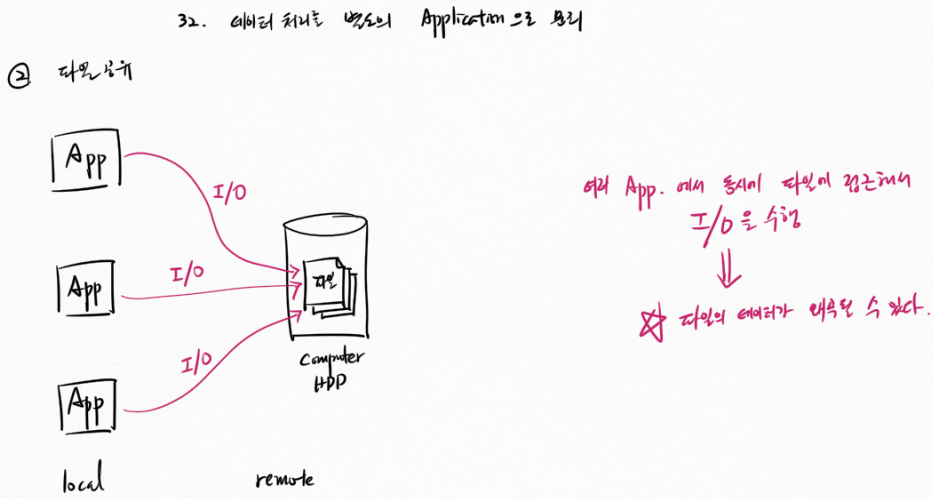 32. 데이터 처리를 별도의 Application 으로 분리
② 파일공유
App
I/O
여러 App. 에서 동시에 파일에 접근해서
I/O 을 수행
App
I/O
파일
☆ 파일의 데이터가 왜곡될 수 있다.
I/O
Computer
HDD
App
local
remote